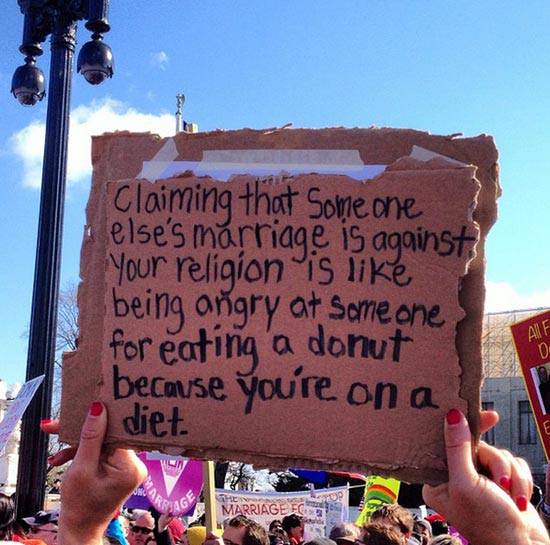 Claiming that someone
else's marriage is against
your religion is like
being angry at someone
for eating a donut
because you're on a
diet.
All F
MARRIAGE
MARRIAGE EQ